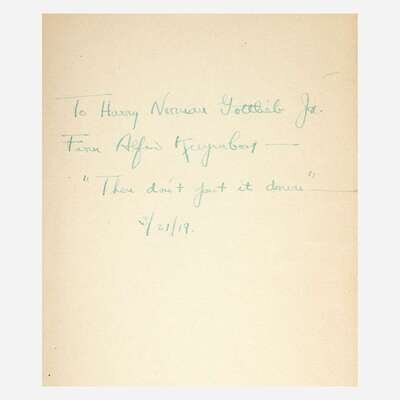 To Harry Norman Gottlieb Jr.
From Alfred Kreymborg —
"Then don't put it down" —
2/21/19.